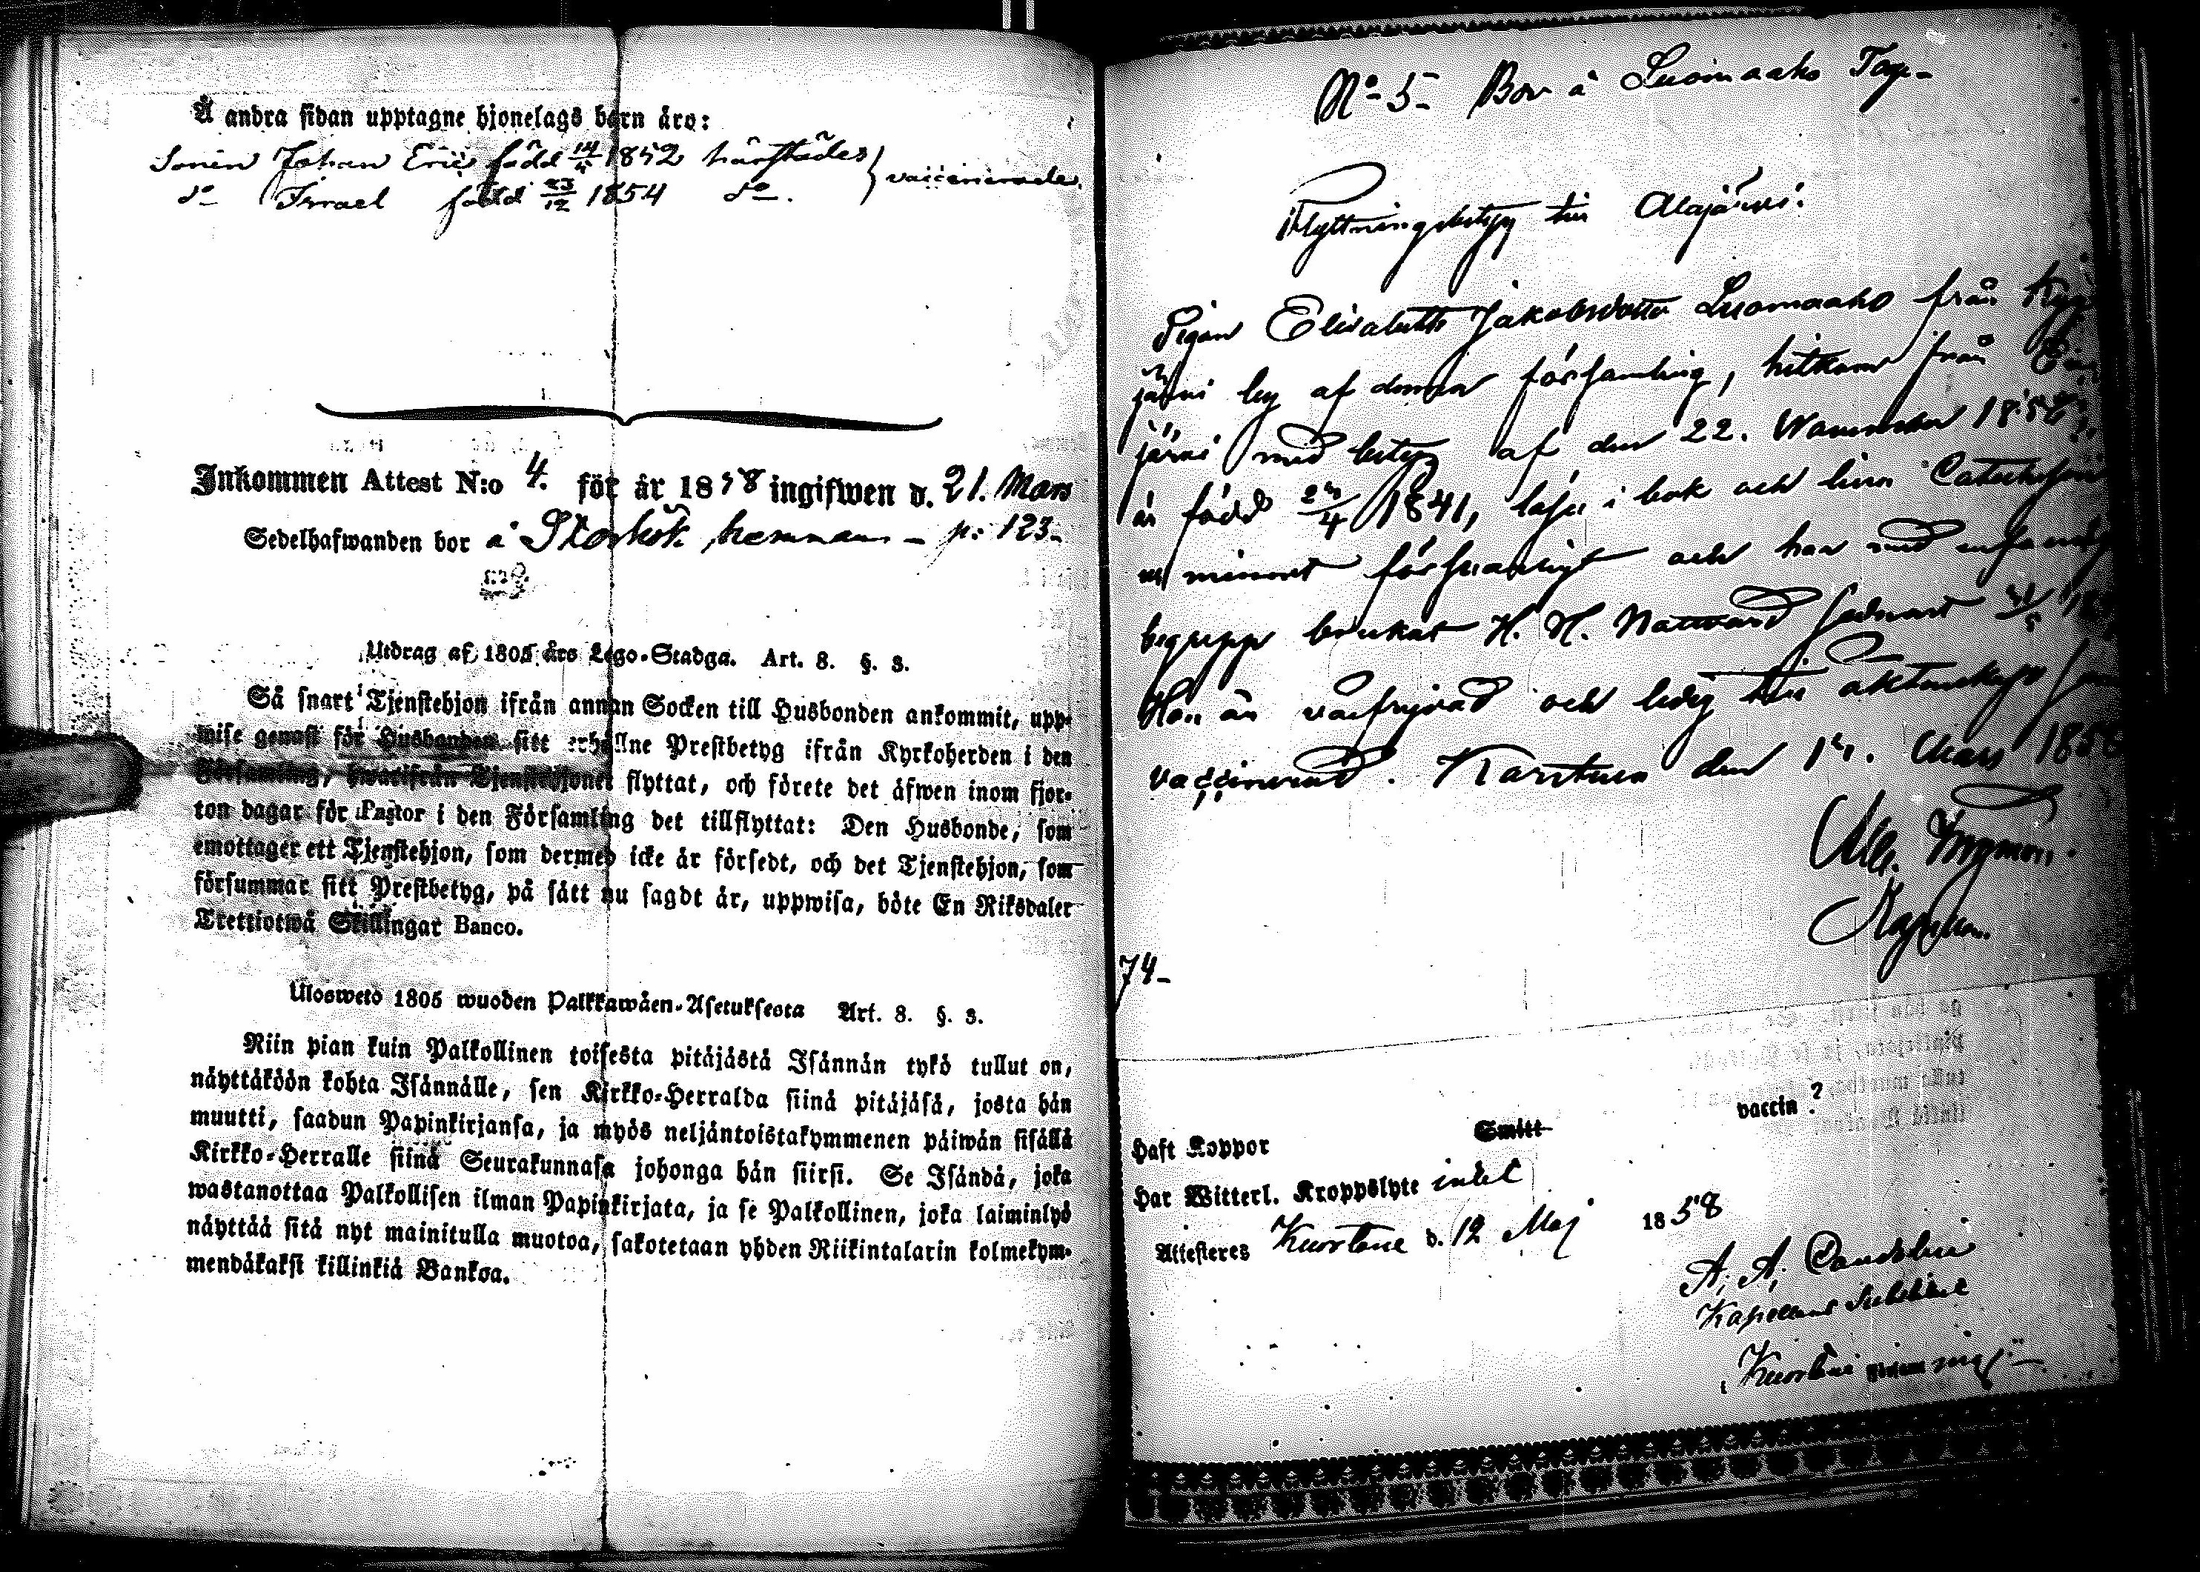 Å andra sidan upptagne hjonelags barn äro:
Sonen Johan Eric född 14/4 1852 härstädes } vaccinerade.
do Israel född 23/12 1854 do.
Inkommen Attest N:o 4. för år 1858 ingifwen d. 21. Mars
Sedelhafwanden bor å Storkök hemman - p. 123-
Utdrag af 1805 års Lego-Stadga. Art. 8. §. 3.
Så snart Tjenstehjon ifrån annan Socken till Husbonden ankommit, upp-
wise genast för Husbonden sitt erhållne Prestbetyg ifrån Kyrkoherden i den
Församling, hwarifrån Tjenstehjonet flyttat, och förete det äfwen inom fjor-
ton dagar för Pastor i den Församling det tillflyttat: Den Husbonde, som
emottager ett Tjenstehjon, som dermed icke är försedt, och det Tjenstehjon, som
försummar sitt Prestbetyg, på sätt nu sagdt är, uppwisa, böte En Riksdaler
Trettiotwå Skillingar Banco.
Uloswetö 1805 wuoden Palkkawäen-Asetuksesta Art. 8. §. 3.
Niin pian kuin Palkollinen toisesta pitäjästä Isännän tykö tullut on,
näyttäköön kohta Isännälle, sen Kirkko-Herralda siinä pitäjäsä, josta hän
muutti, saadun Papinkirjansa, ja myös neljäntoistakymmenen päiwän sisällä
Kirkko-Herralle siinä Seurakunnasa johonga hän siirsi. Se Isändä, joka
wastanottaa Palkollisen ilman Papinkirjata, ja se Palkollinen, joka laiminlyö
näyttää sitä nyt mainitulla muotoa, sakotetaan yhden Riikintalarin kolmekym-
mendäkaksi killinkiä Bankoa.
No 5- Bor å Luomaaho Torp-
Flyttningsbetyg till Alajärvi.
Pigan Elisabeth Jakobsdotter Luomaaho från
järvi by af denna församling, hitkom från
järvi med betyg af den 22. November
är född 24/4 1841, läser i bok och lärt Catechesen
minnet försvarligt och har med
begrepp brukat H. H. Nattvard sednast
Hon är välfrejdad och ledig till äktenskap
vaccinerad. Karstula den Mars
Alb. Ingman.
Kapellan.
74-
vaccin ?
Haft Koppor Smitt
Har Witterl. Kroppslyte intet
Attesteres Kuortane d. 12 Maj 1858
A. A.
Kapellans
Kuortane